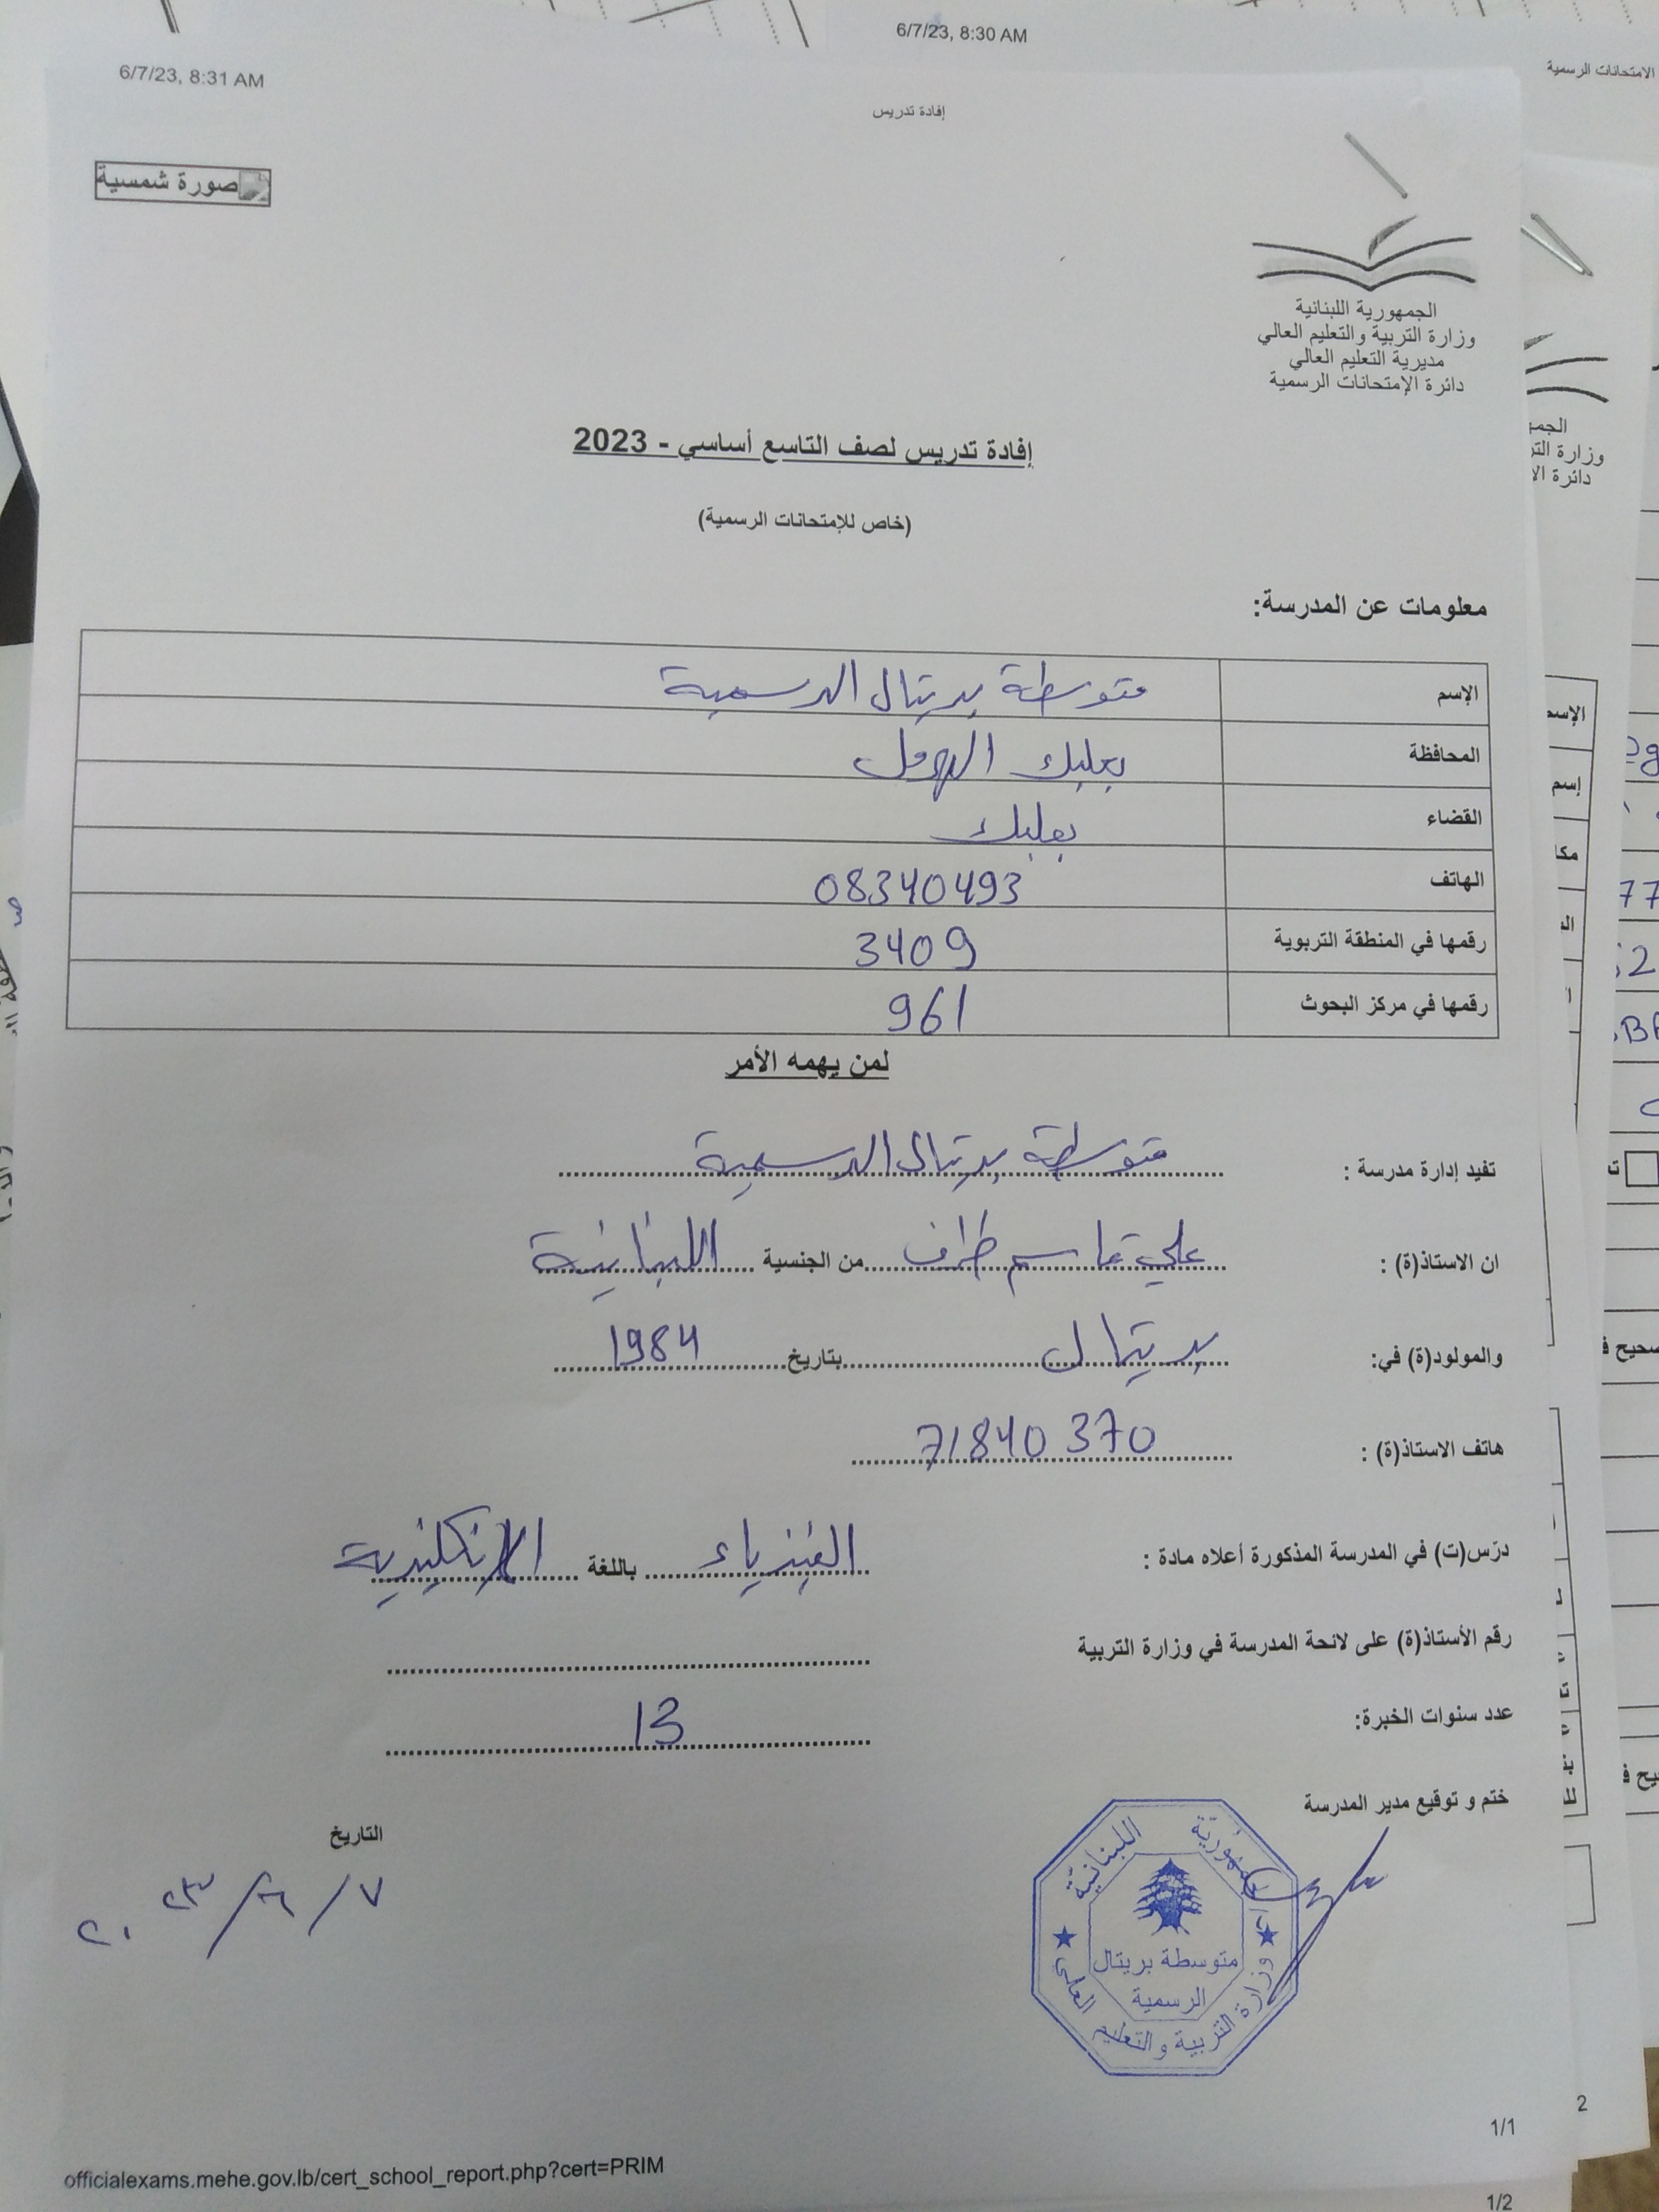 6/7/23, 8:30 AM
الامتحانات الرسمية
6/7/23, 8:31 AM
إفادة تدريس
صورة شمسية
الجمهورية اللبنانية
وزارة التربية والتعليم العالي
مديرية التعليم العالي
دائرة الإمتحانات الرسمية
إفادة تدريس لصف التاسع أساسي - 2023
(خاص للإمتحانات الرسمية)
معلومات عن المدرسة:
الإسم متوسطة بريتال الرسمية
المحافظة بعلبك الهرمل
القضاء بعلبك
الهاتف 08340493
رقمها في المنطقة التربوية 3409
رقمها في مركز البحوث 961
لمن يهمه الأمر
تفيد إدارة مدرسة : متوسطة بريتال الرسمية
ان الاستاذ(ة) : علي قاسم طراف من الجنسية اللبنانية
والمولود(ة) في: بريتال بتاريخ 1984
هاتف الاستاذ(ة) : 71840 370
درّس(ت) في المدرسة المذكورة أعلاه مادة : الفيزياء باللغة الإنكليزية
رقم الأستاذ(ة) على لائحة المدرسة في وزارة التربية
عدد سنوات الخبرة: 13
ختم و توقيع مدير المدرسة
التاريخ
٧/٦/٢٠٢٣
الجمهورية اللبنانية
متوسطة بريتال
الرسمية
وزارة التربية والتعليم العالي
1/1
officialexams.mehe.gov.lb/cert_school_report.php?cert=PRIM
2
1/2